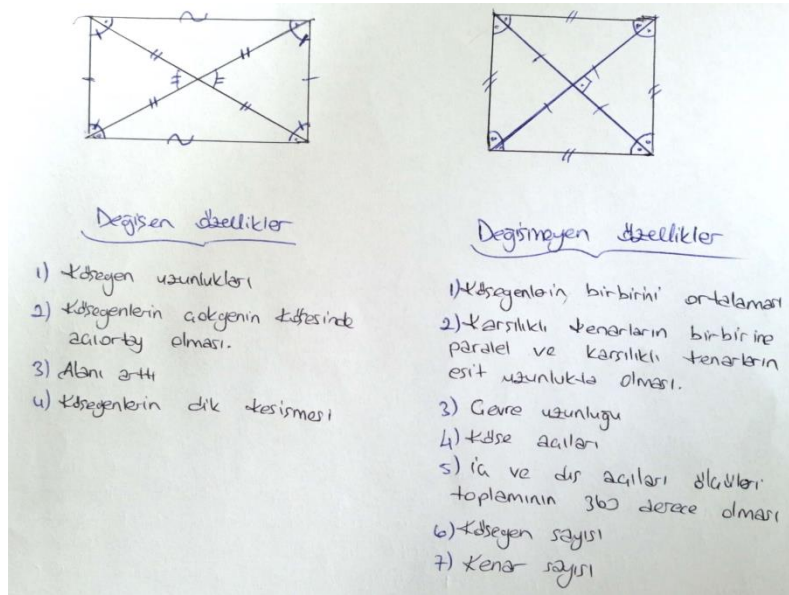 Değişen özellikler
1) Köşegen uzunlukları
2) Köşegenlerin çokgenin köşesinde
açıortay olması.
3) Alanı arttı
4) Köşegenlerin dik kesişmesi
Değişmeyen özellikler
1) Köşegenlerin birbirini ortalaması
2) Karşılıklı kenarların birbirine
paralel ve karşılıklı kenarların
eşit uzunlukta olması.
3) Çevre uzunluğu
4) Köşe açıları
5) İç ve dış açıları ölçüleri
toplamının 360 derece olması
6) Köşegen sayısı
7) Kenar sayısı